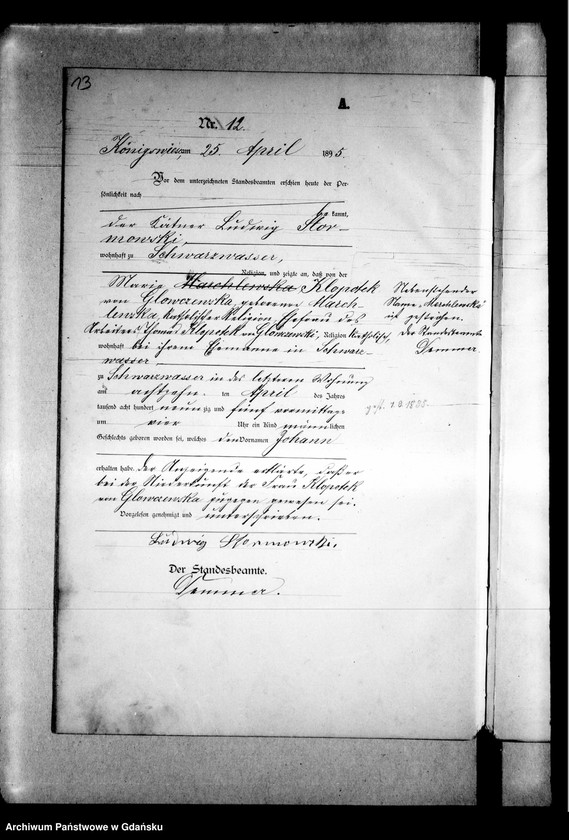 13
A.
Nr. 12.
Königswiese, am 25. April 1895.
Vor dem unterzeichneten Standesbeamten erschien heute, der Per-
sönlichkeit nach
be kannt,
der Kätner Ludwig Slor-
mowski,
wohnhaft zu Schwarzwasser,
Religion, und zeigte an, daß von der
Marie Marchlewska Klopotek
von Glowczewka, geborener March-
lewska, katholischer Religion, Ehefrau des
Arbeiters Thomas Klopotek von Glowczewski, Religion katholisch,
wohnhaft bei ihrem Ehemanne in Schwarz-
wasser
zu Schwarzwasser in der letzteren Wohnung
am achtzehn ten April des Jahres
tausend acht hundert neun zig und fünf vormittags
um vier Uhr ein Kind männlichen
Geschlechts geboren worden sei, welches den Vornamen Johann
erhalten habe. Der Anzeigende erklärte, daß er
bei der Niederkunft der Frau Klopotek
von Glowczewska zugegen gewesen sei.
Vorgelesen, genehmigt und unterschrieben.
Ludwig Slormowski.
Der Standesbeamte.
Demmer.
Nebenstehender
Name „Marchlewska“
ist gestrichen.
Der Standesbeamte
Demmer.
Archiwum Państwowe w Gdańsku